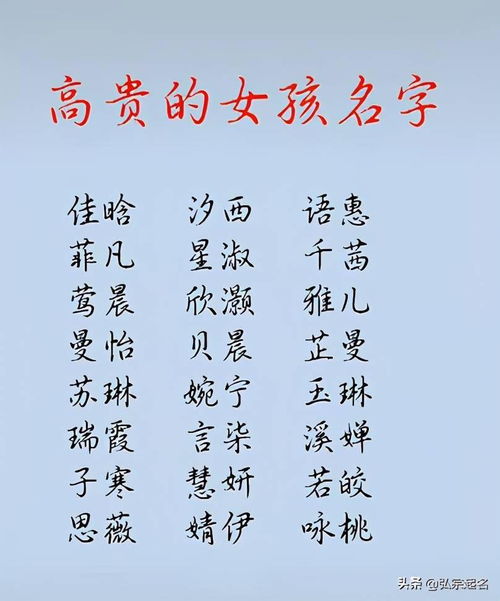 高贵的女孩名字
佳晗 汐西 语惠
菲凡 星淑 千茜
莺晨 欣灏 雅儿
曼怡 贝晨 芷曼
苏琳 婉宁 玉琳
瑞霞 言柒 溪婵
子寒 慧妍 若皎
思薇 婧伊 咏桃
头条 @弘宗起名